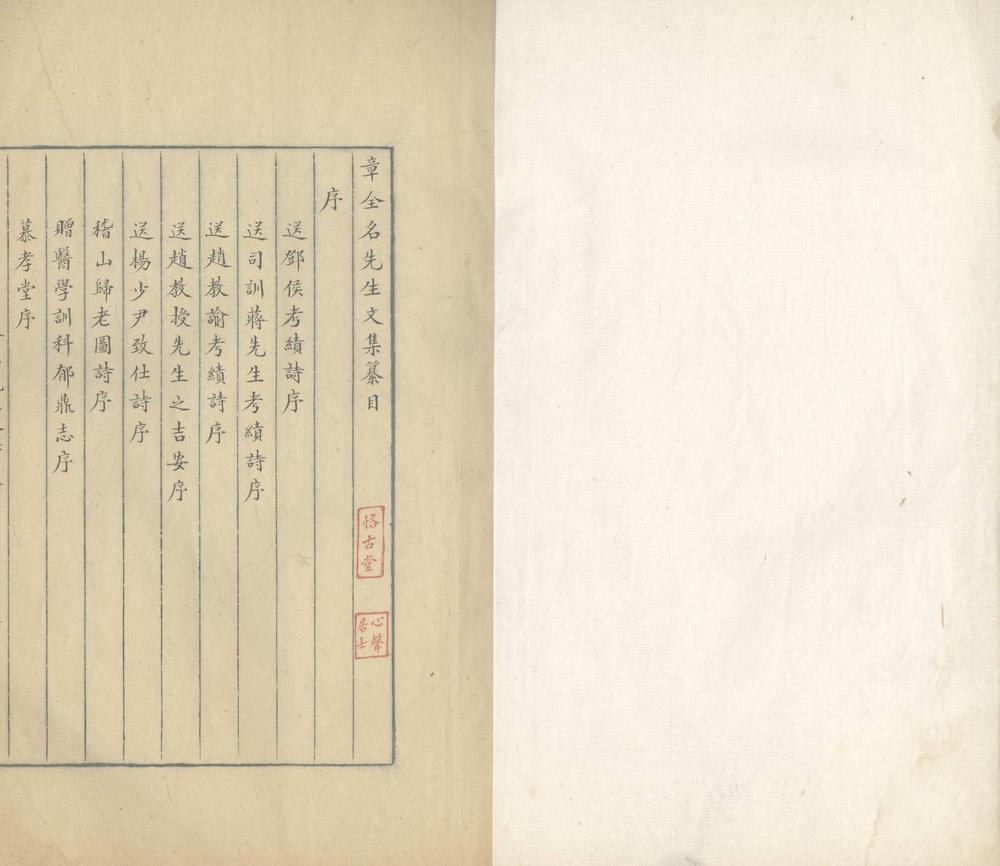 章全名先生文集纂目
恪古堂
心聲
居士
序
送鄧侯考績詩序
送司訓蔣先生考績詩序
送趙教諭考績詩序
送趙教授先生之吉安序
送楊少尹致仕詩序
稽山歸老圖詩序
贈醫學訓科郁鼎志序
慕孝堂序